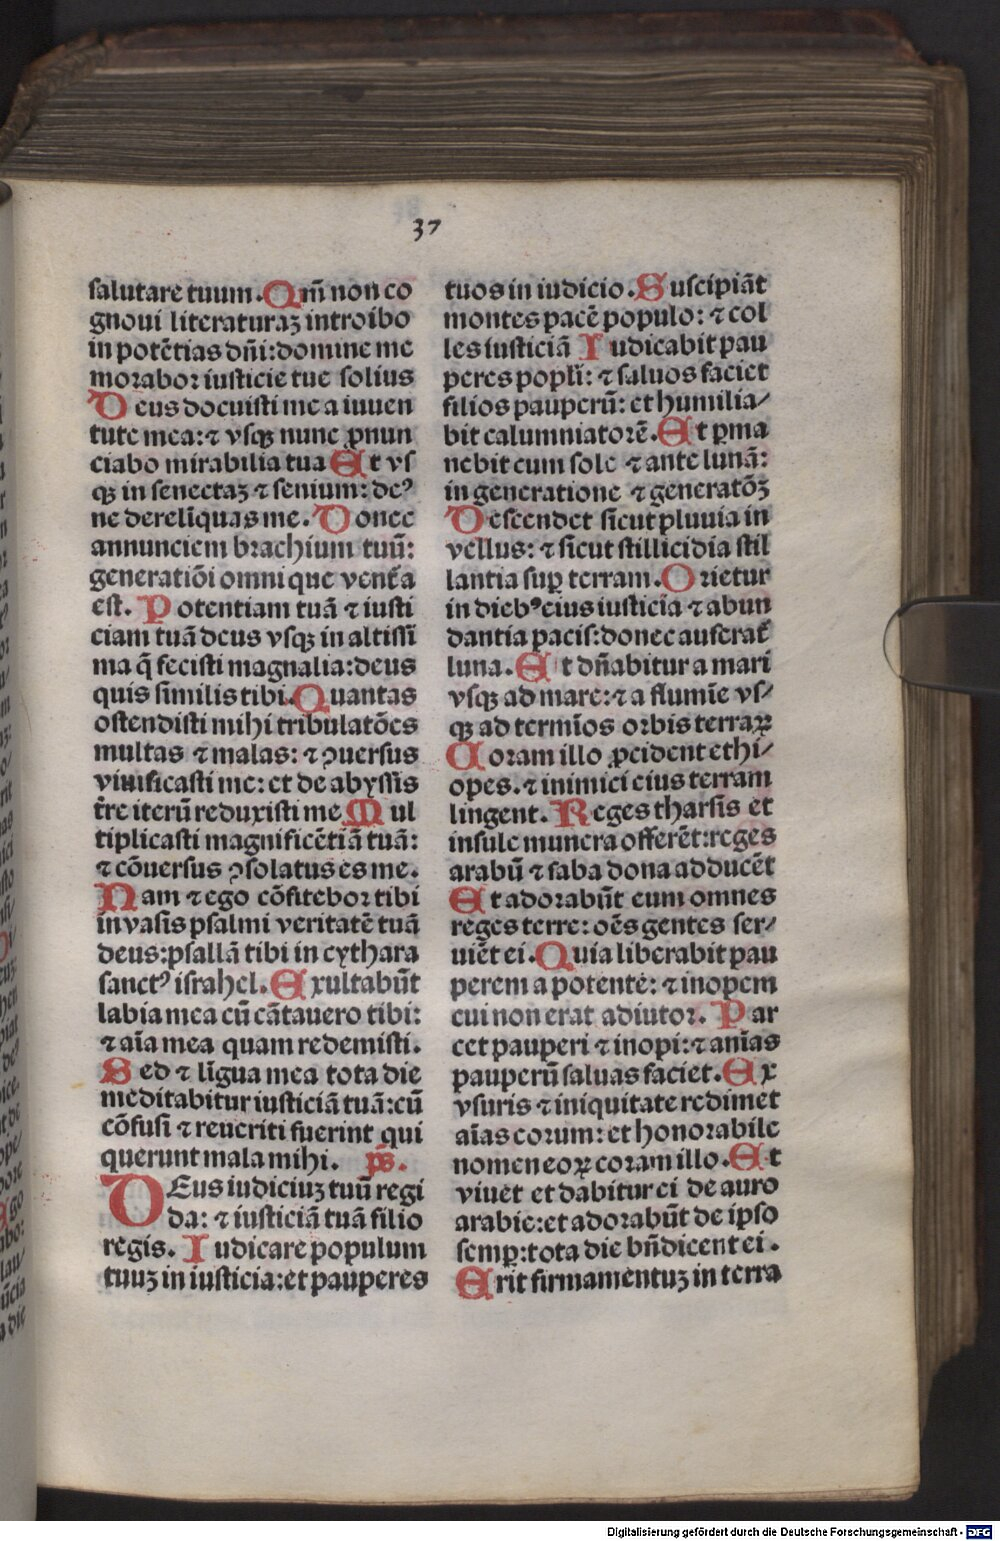 37
salutare tuum. Qm̄ non co
gnoui literaturaꝫ introibo
in potētias dn̄i: domine me
moꝛaboꝛ iusticie tue solius
Deus docuisti me a iuuen
tute mea: ⁊ vsqꝫ nunc ꝓnun
ciabo mirabilia tua Et vs
qꝫ in senectaꝫ ⁊ senium: deꝰ
ne dereli̅quas me. Donec
annunciem bꝛachium tuū:
generatiōi omni que vent̄a
est. Potentiam tuā ⁊ iusti
ciam tuā deus vsqꝫ in altissi
ma q̄ fecisti magnalia: deus
quis similis tibi. Quantas
ostendisti mihi tribulatōes
multas ⁊ malas: ⁊ ꝯuersus
viuificasti me: et de abyssis
t̄re iterū reduxisti me Mul
tiplicasti magnificētiā tuā:
⁊ cōuersus ꝯsolatus es me.
Nam ⁊ ego cōfiteboꝛ tibi
in vasis psalmi veritatē tuā
deus: psallā tibi in cythara
sanctꝰ israhel. Exultabūt
labia mea cū cātauero tibi:
⁊ aīa mea quam redemisti.
Sed ⁊ līgua mea tota die
meditabitur iusticiā tuā: cū
cōfusi ⁊ reueriti fuerint qui
querunt mala mihi. ps̄.
DEus iudiciuꝫ tuū regi
da: ⁊ iusticiā tuā filio
regis. Iudicare populum
tuuꝫ in iusticia: et pauperes
tuos in iudicio. Suscipiāt
montes pacē populo: ⁊ col
les iusticiā Iudicabit pau
peres popli̅: ⁊ saluos faciet
filios pauperū: et humilia/
bit calumniatoꝛē. Et ꝑma
nebit cum sole ⁊ ante lunā:
in generatione ⁊ generatōꝫ
Descendet sicut pluuia in
vellus: ⁊ sicut stillicidia stil
lantia suꝑ terram. Oꝛietur
in diebꝰ eius iusticia ⁊ abun
dantia pacis: donec auferat̄
luna. Et dn̄abitur a mari
vsqꝫ ad mare: ⁊ a flumīe vs/
qꝫ ad termīos oꝛbis terraꝝ
Coꝛam illo ꝓcident ethi/
opes. ⁊ inimici eius terram
lingent. Reges tharsis et
insule munera offerēt: reges
arabū ⁊ saba dona adducēt
Et adoꝛabūt eum omnes
reges terre: oēs gentes ser/
uiēt ei. Quia liberabit pau
perem a potente: ⁊ inopem
cui non erat adiutoꝛ. Par
cet pauperi ⁊ inopi: ⁊ anīas
pauperū saluas faciet. Ex
vsuris ⁊ iniquitate redimet
aīas eoꝛum: et honoꝛabile
nomen eoꝝ coꝛam illo. Et
viuet et dabitur ei de auro
arabie: et adoꝛabūt de ipso
semꝑ: tota die bn̄dicent ei.
Erit firmamentuꝫ in terra
Digitalisierung gefördert durch die Deutsche Forschungsgemeinschaft - DFG